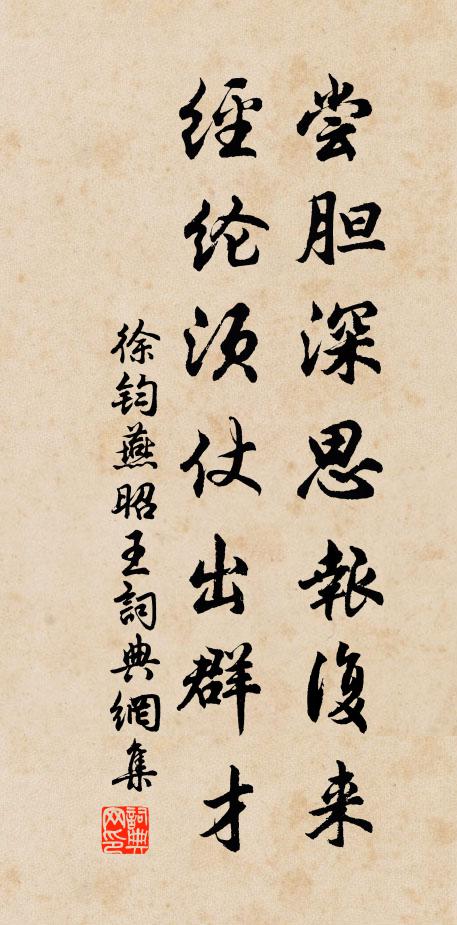 尝胆深思報復来
经纶须仗出群才
徐鈞燕昭王詞典網集
詞典网印